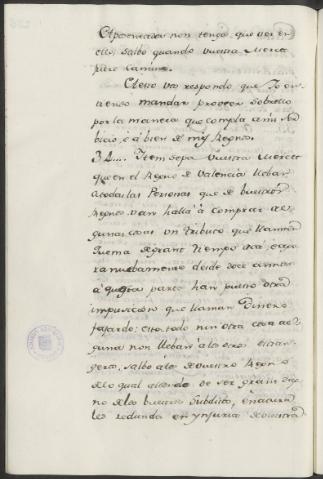 Aposentador non tengo que ver en
ello, salbo quando vuestra Merced
fuere camino.
A esto vos respondo que Yo en
tiendo mandar proveer sobrello
por la manera que cumpla a mi Ser
bicio, é á bien de mis Regnos.
34.... Item sepa Vuestra Merced
que en el Regno de Valencia lleban
a todas las Personas que de buestros
Regnos van hallá á comprar al
gunas cosas un tributo que llaman
Quema de grant tiempo acá; é agora
nuebamente desde doce annos
á questa parte han puesto otra
imposicion que llaman Dinero
faxardo; esto todo nin otra cosa al
guna non lleban á los otros estran
geros, salbo á los de vuestros Regnos
de lo qual allende de ser grain dan
no de los buestros subditos, encara
les redunda en ynjuria de vuestra